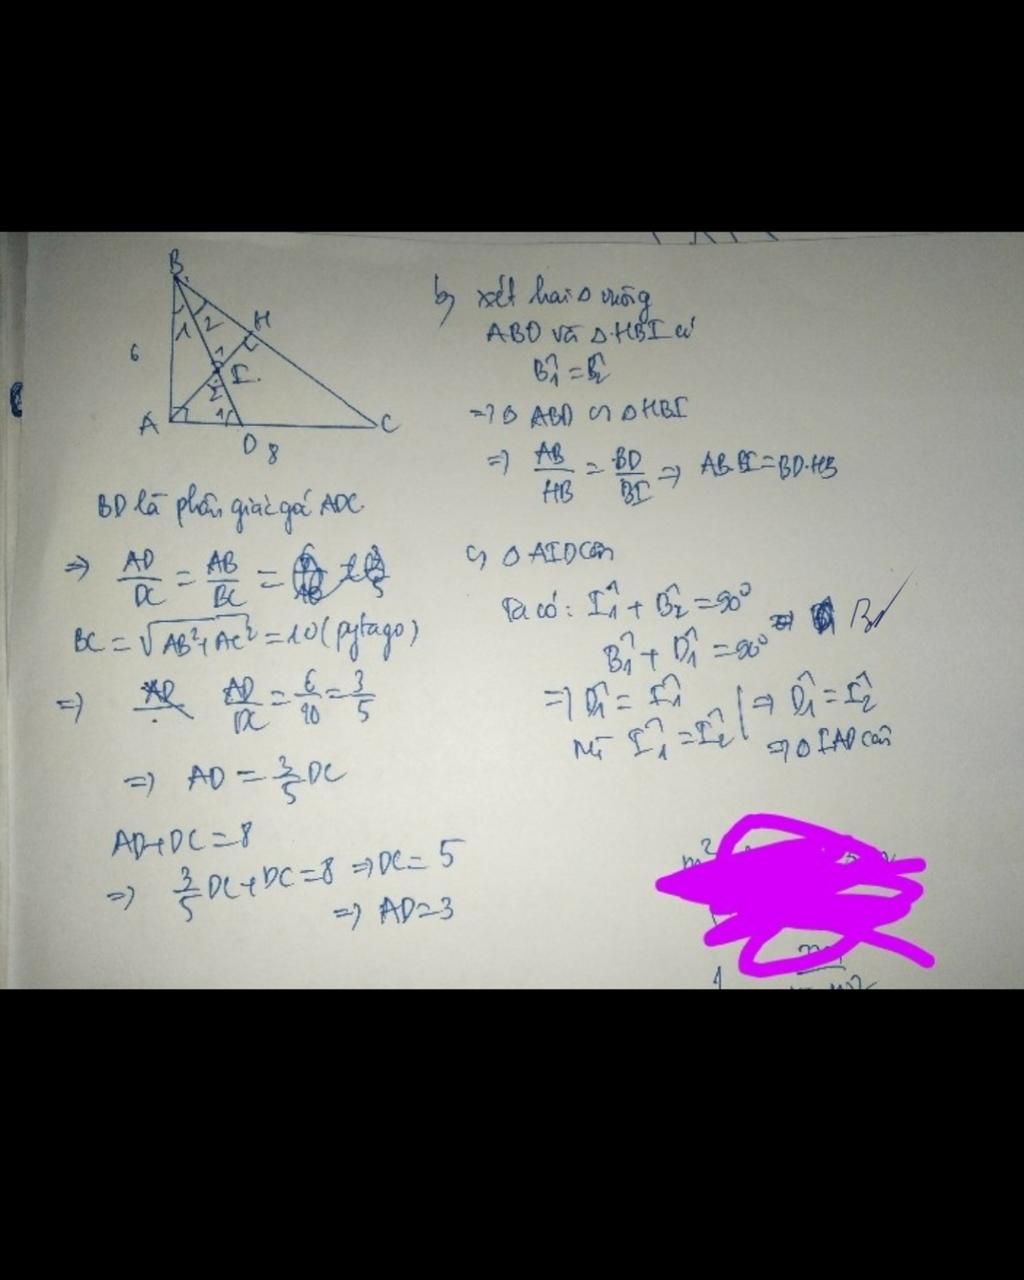 B
1 2 H
6 1
I
2
A 1 D C
8
BD là phân giác góc ADC
=> AD/DC = AB/BC =
BC = √AB²+AC² = 10 (pytago)
=> AD/DC = 6/10 = 3/5
=> AD = 3/5 DC
AD+DC=8
=> 3/5 DC+DC=8 => DC= 5
=> AD=3
b) xét hai Δ vuông
ABD và ΔHBI có
B̂1 = B̂2
=> Δ ABD ∽ ΔHBI
=> AB/HB = BD/BI => AB.BI=BD.HB
c) Δ AID cân
Ta có: Î1 + B̂2 = 90°
B̂1 + D̂1 = 90° =>
=> D̂1 = Î1
mà Î1 = Î2 | => D̂1 = Î2
=> Δ IAD cân